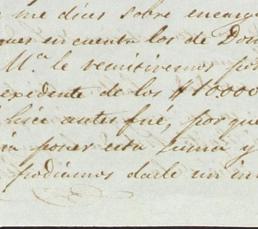 me dices sobre encarg
en cuenta los de Don
M.ª le remitiremos por
expediente de los $10.000
hice antes fue, porque
poner esta suma y
podiamos darle un in